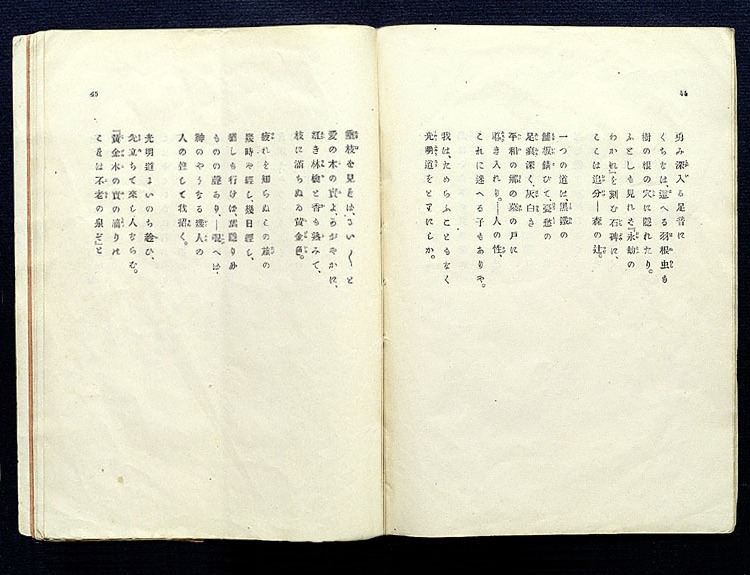 44
勇み深入る足音に
くちなは、這へる羽根虫も
樹の根の穴に隠れたり。
ふとしも見れば『永劫の
わかれ』を刻む石碑に、
ここは追分―森の辻。
一つの道は黒鐵の
鋪板鎖ひて、憂愁の
足痕深く、灰白き
平和の郷の墓の戸に
暮き入れり。―人の性、
これに迷へる子もありや。
我は、ためらふこともなく
光明道をとずにしか。
45
垂枝を見れば、こい〳〵と
愛の木の實よ、かがやかに、
紅き林檎と香も熟みて、
枝に滿ちぬる黄金色。
疲れを知らぬこの旅の
幾時や經し、幾日經し、
猶しも行けば、葉隠りゆ
ものの聲あり―覗へば、
神のやうなる媄人の
人の性して我招く。
光明道よいのち絵ひ、
先立ちて来し人ならむ。
『黄金木の實の滴りは
こは不老の泉ぞ』と